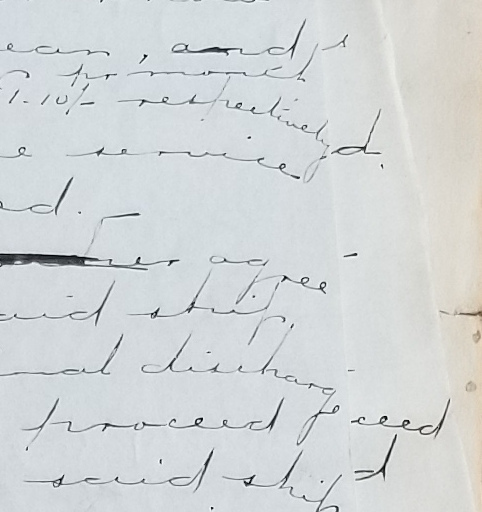 ean, and
pr month
£1.10/- respectively
e service
ed.
agree
aid ship,
nal discharge
proceed
said ship